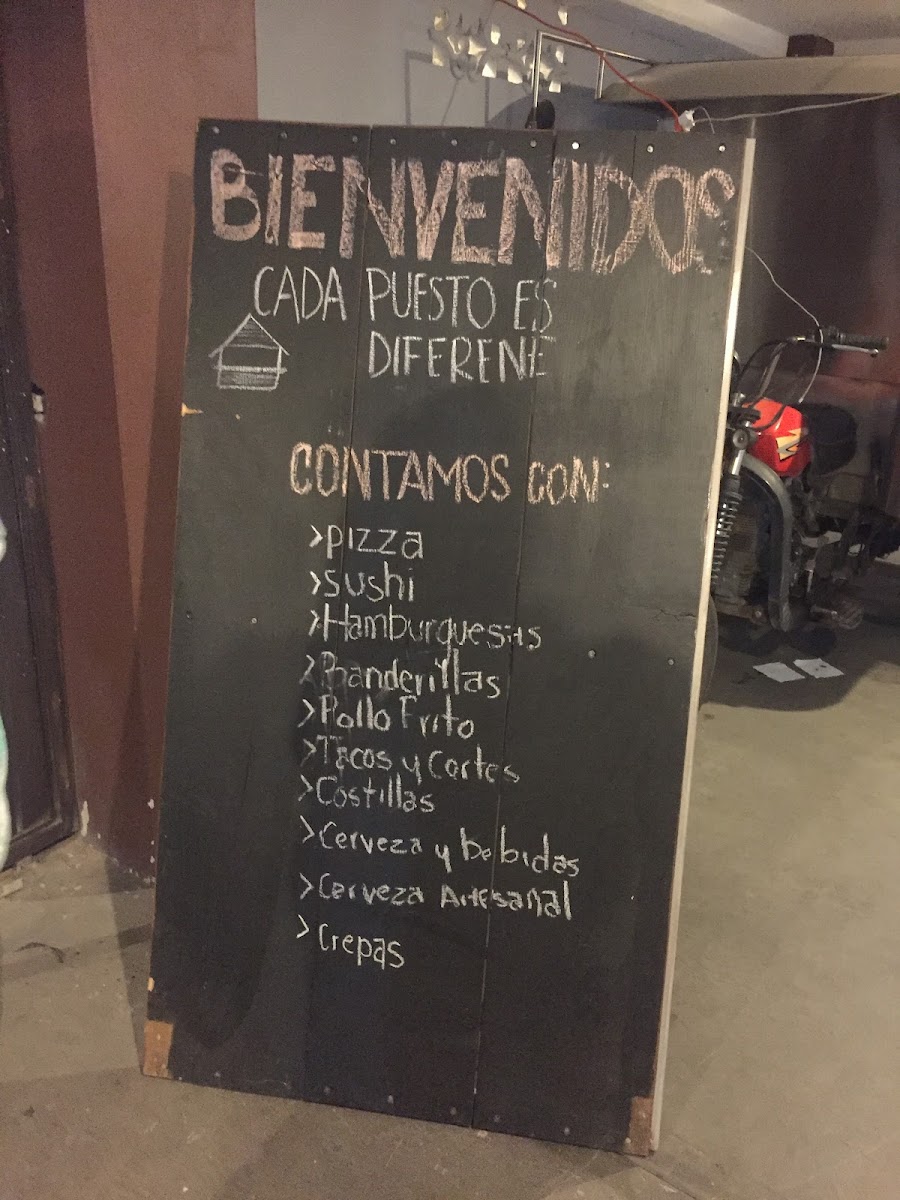 BIENVENIDOS
CADA PUESTO ES
DIFERENE
CONTAMOS CON:
>pizza
>sushi
>Hamburguesas
>Banderillas
>Pollo Frito
>Tacos y Cortes
>Costillas
>Cerveza y bebidas
>Cerveza Artesanal
>Crepas